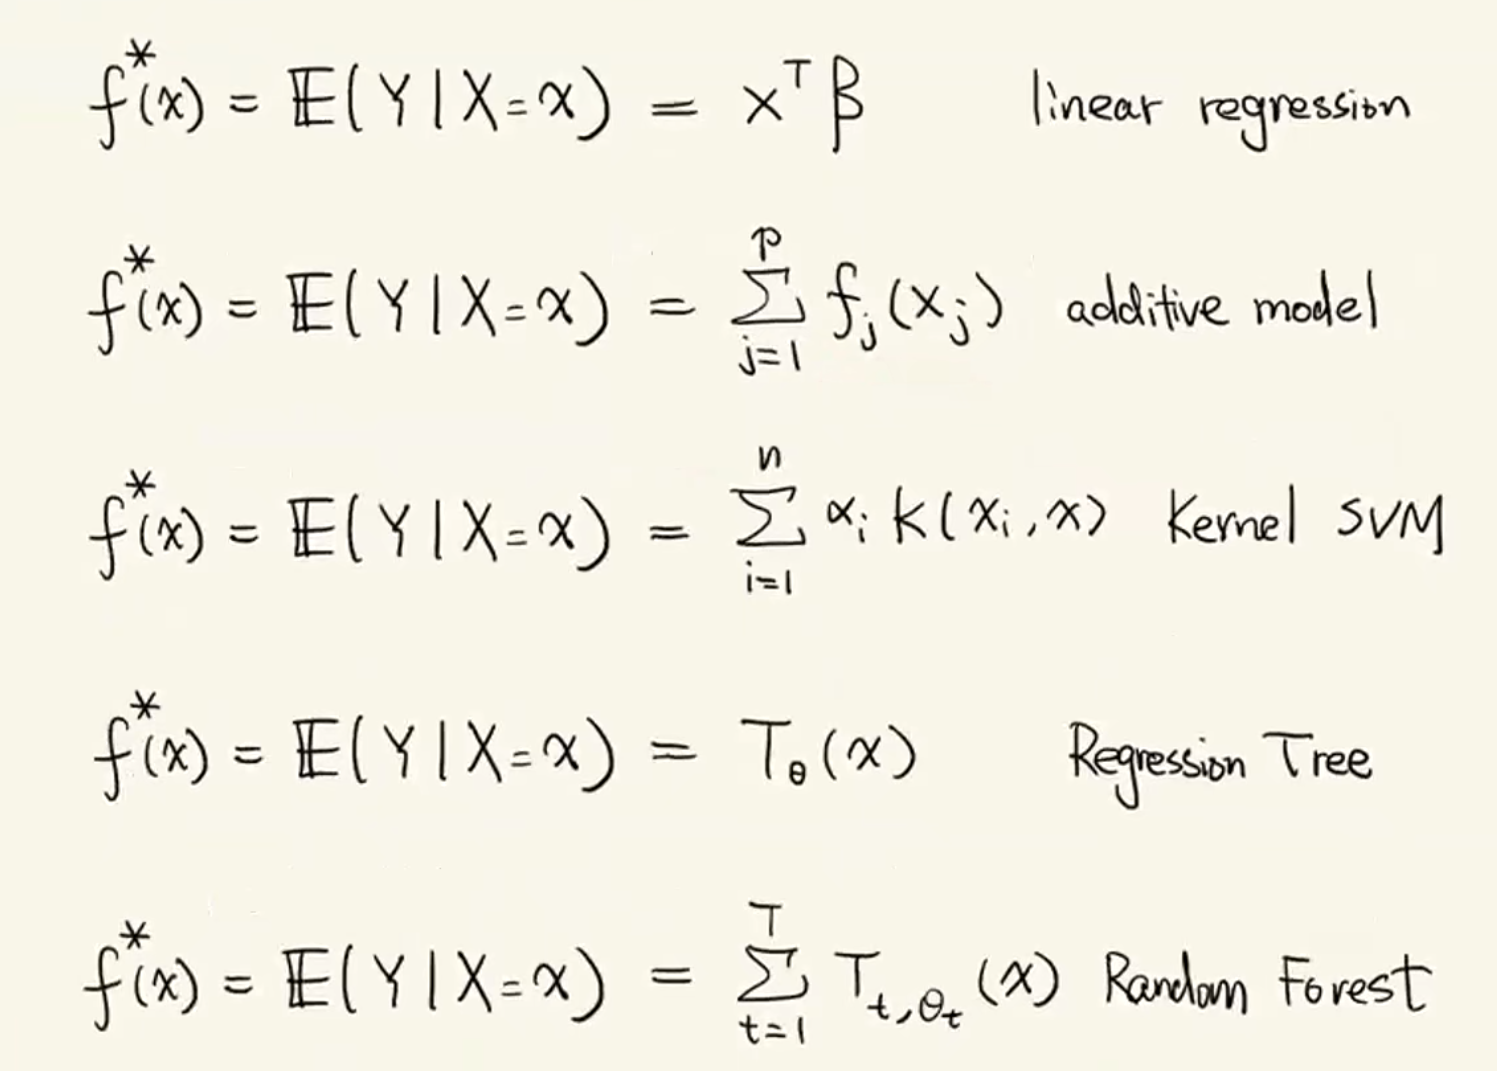 f*(x) = 𝔼(Y|X=x) = xᵀβ linear regression
f*(x) = 𝔼(Y|X=x) = ∑_{j=1}^{p} f_j(x_j) additive model
f*(x) = 𝔼(Y|X=x) = ∑_{i=1}^{n} α_i k(x_i, x) Kernel SVM
f*(x) = 𝔼(Y|X=x) = T_θ(x) Regression Tree
f*(x) = 𝔼(Y|X=x) = ∑_{t=1}^{T} T_{t,θ_t}(x) Random Forest